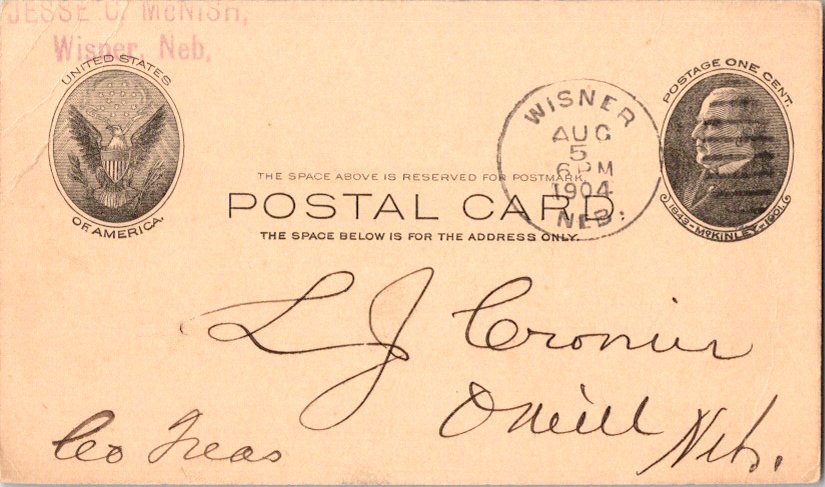 JESSE C. McNISH,
Wisner, Neb.
UNITED STATES
OF AMERICA.
POSTAGE ONE CENT.
1843-McKINLEY-1901.
WISNER
AUG
5
6 PM
1904
NEB.
THE SPACE ABOVE IS RESERVED FOR POSTMARK.
POSTAL CARD.
THE SPACE BELOW IS FOR THE ADDRESS ONLY.
L J Cronin
Oneill
Neb.
Co Treas